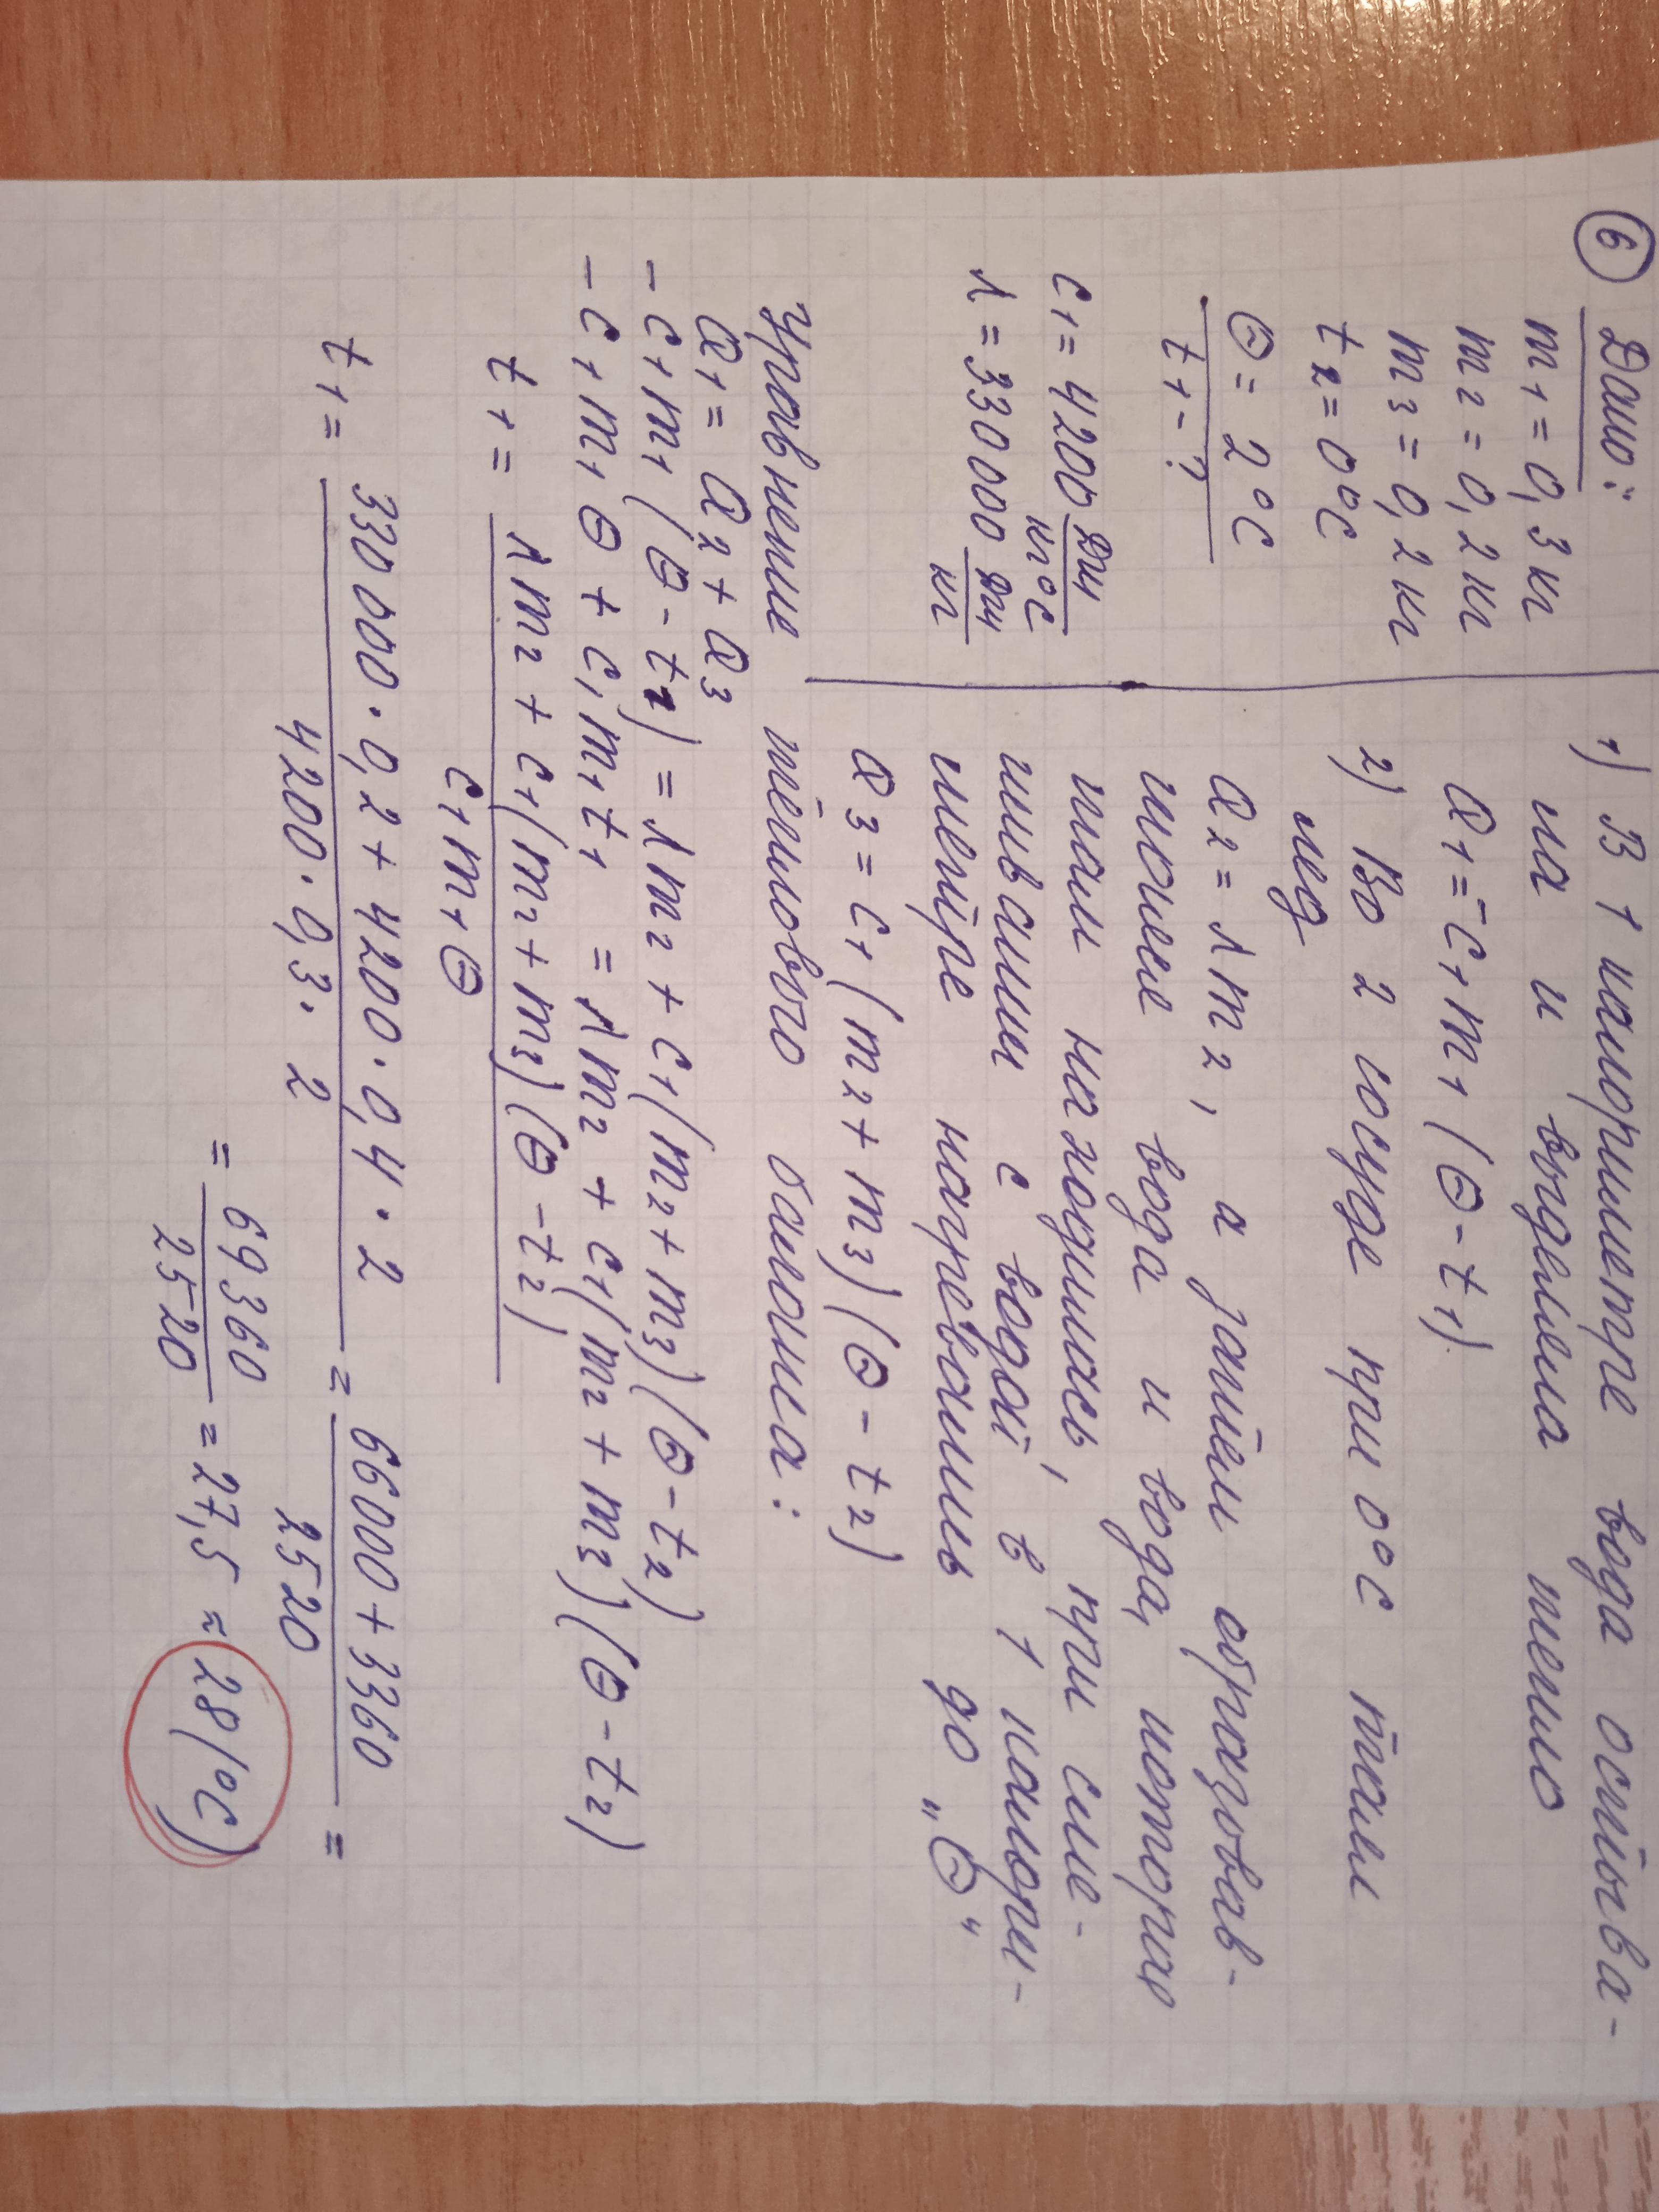 6 Дано:
m1 = 0,3 кг
m2 = 0,2 кг
m3 = 0,2 кг
t2 = 0°C
Θ = 2°C
t1 - ?
c1 = 4200 Дж/кг°C
λ = 330 000 Дж/кг
1) В 1 калориметре вода остыва-
ла и выделила тепло
Q1 = -c1m1(Θ - t1)
2) Во 2 сосуде при 0°C таял
лед
Q2 = λm2, а затем образовав-
шаяся вода и вода, которая
там находилась, при сме-
шивании с водой, в 1 калори-
метре нагревались до „Θ“
Q3 = c1(m2 + m3)(Θ - t2)
Уравнение теплового баланса:
Q1 = Q2 + Q3
-c1m1(Θ - t2) = λm2 + c1(m2 + m3)(Θ - t2)
-c1m1Θ + c1m1t1 = λm2 + c1(m2 + m3)(Θ - t2)
t1 = λm2 + c1(m2 + m3)(Θ - t2)
c1m1Θ
t1 = 330 000 · 0,2 + 4200 · 0,4 · 2 / 4200 · 0,3 · 2 = 66000 + 3360 / 2520 =
= 69360 / 2520 = 27,5 ≈ 28 (°C)